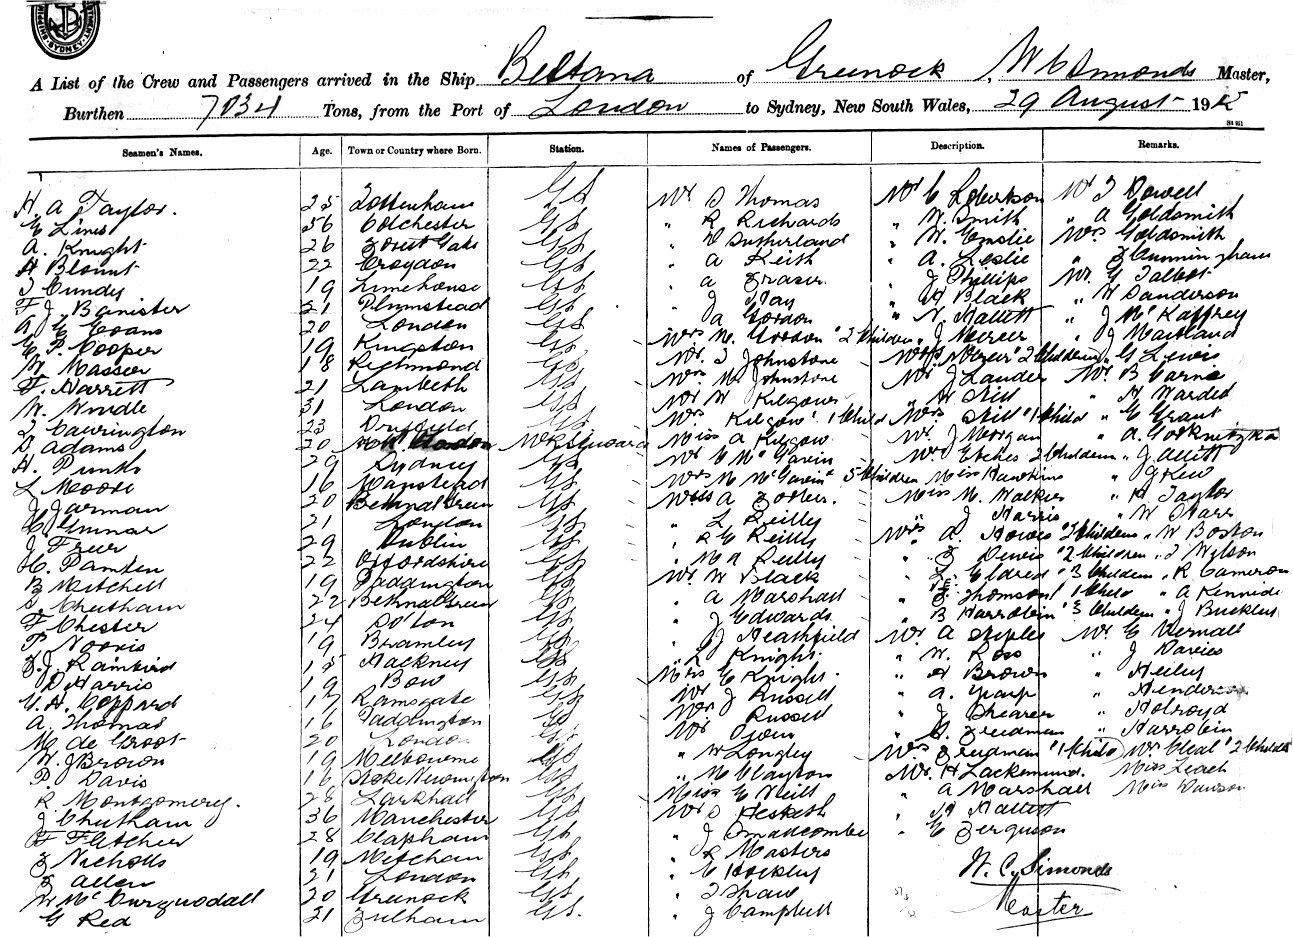 A List of the Crew and Passengers arrived in the Ship Beltana of Greenock, W C Simonds Master,
Burthen 7034 Tons, from the Port of London to Sydney, New South Wales, 29 August 19
Seamen's Names. Age. Town or Country where Born. Station. Names of Passengers. Description. Remarks.
H A Taylor. 25 Tottenham GS Mr S Thomas Mr C Robertson Mr T Dowell
E Lines 36 Colchester GS " R Richards " W. Smith " A Goldsmith
A. Knight 26 Forest Gate GS " W Sutherland " W. Emslie Mrs Goldsmith
H Blount 22 Croydon GS " A Keith " A. Leslie " F Cunningham
T Cundy 19 Limehouse GS " A Frazer " J Phillips Mr G Talbot
F J Banister 21 Plumstead GS " J Hay " H Black " W Sanderson
A. G Evans 20 London GS " A Gordon " N. Hallett " J McKaffrey
E P. Cooper 19 Kingston GS Mrs M. Gordon "2 Children " J Mercer " J Maitland
W Masser 18 Richmond GS Mr. T Johnstone Mrs Mercer "2 Children " G Lewis
F. Harrett 21 Lambeth GS Mrs M Johnstone Mr J Lauder Mr. B Carne
W. Windle 31 London GS Mr W Kilgour " H Hill " H Warded
T Cawrington 23 Dryfield GS Mrs Kilgow "1 Child Mrs Hill "1 Child " E Grant
D Adams 20 London Miss A Kilgow Mr. J Morgan " A.
H. Punks 29 Sydney GS Mr C McGavin Mr. Etches 2 Children " J Allett
L Moore 16 Wanstead GS Mrs M McGavin 5 Children Miss Hawkins " J Kew
J Jarman 20 Bethnal Green GS Miss A Foster. Miss M. Walker " H Taylor
21 London GS " L Reilly " J Harris " W Harr
J Freer 29 Dublin GS " R E Reilly Mrs A. Howes 2 Children " W Boston
H. Pamten 22 Oxfordshire GS " M A Reilly " F Dennis "2 Children " T Wilson
B Mitchell 19 Paddington GS Mr. W Black " L Eldred "3 Children " R Cameron
S Cheetham 22 Bethnal Green GS " A Marshall " E Thomson 1 Child " A Kennedie
F Chester 24 Bolton GS " J Edwards " B Harrobin "3 Children " J Buckley
P Norris 19 Bramley GS " J Heathfield Mr A Steples Mr E Vernall
F. J. Rambird 15 Hackney GS " L Knight. " W. Ross " J Davies
D Harris 19 Bow GS Mrs E Knight. " H Brown " Heiley
G. H. Coppard 17 Ramsgate GS Mr J Russell " A. Yarp " Henderson
A. Thomas 16 Paddington GS Mrs Russell " J Shearer " Holroyd
M. de Groot 20 London GS Mr " G. Freedman " Harrobin
W. J Brown 19 Melbourne GS " W Longley Mrs Freedman "1 Child Mrs Cleal "2 Children
P. Davis 16 Stoke Newington GS " M Clayton Mr. H Lackemund. Miss Leach
R Montgomery. 28 Larkhall GS Miss E Neill " A Marshall Miss Dawson
J Chetham 36 Manchester GS Mr S Hesketh " H Hallett
F Fletcher 28 Clapham GS " J Smallcombe " E Ferguson
F Nicholls 19 Mitcham GS " R Masters
F Allen 21 London GS " E Hockley W. C. Simonds
W McCurquodall 20 Greenock GS " T Shaw Master
G Red 21 Fulham GS. " J Campbell